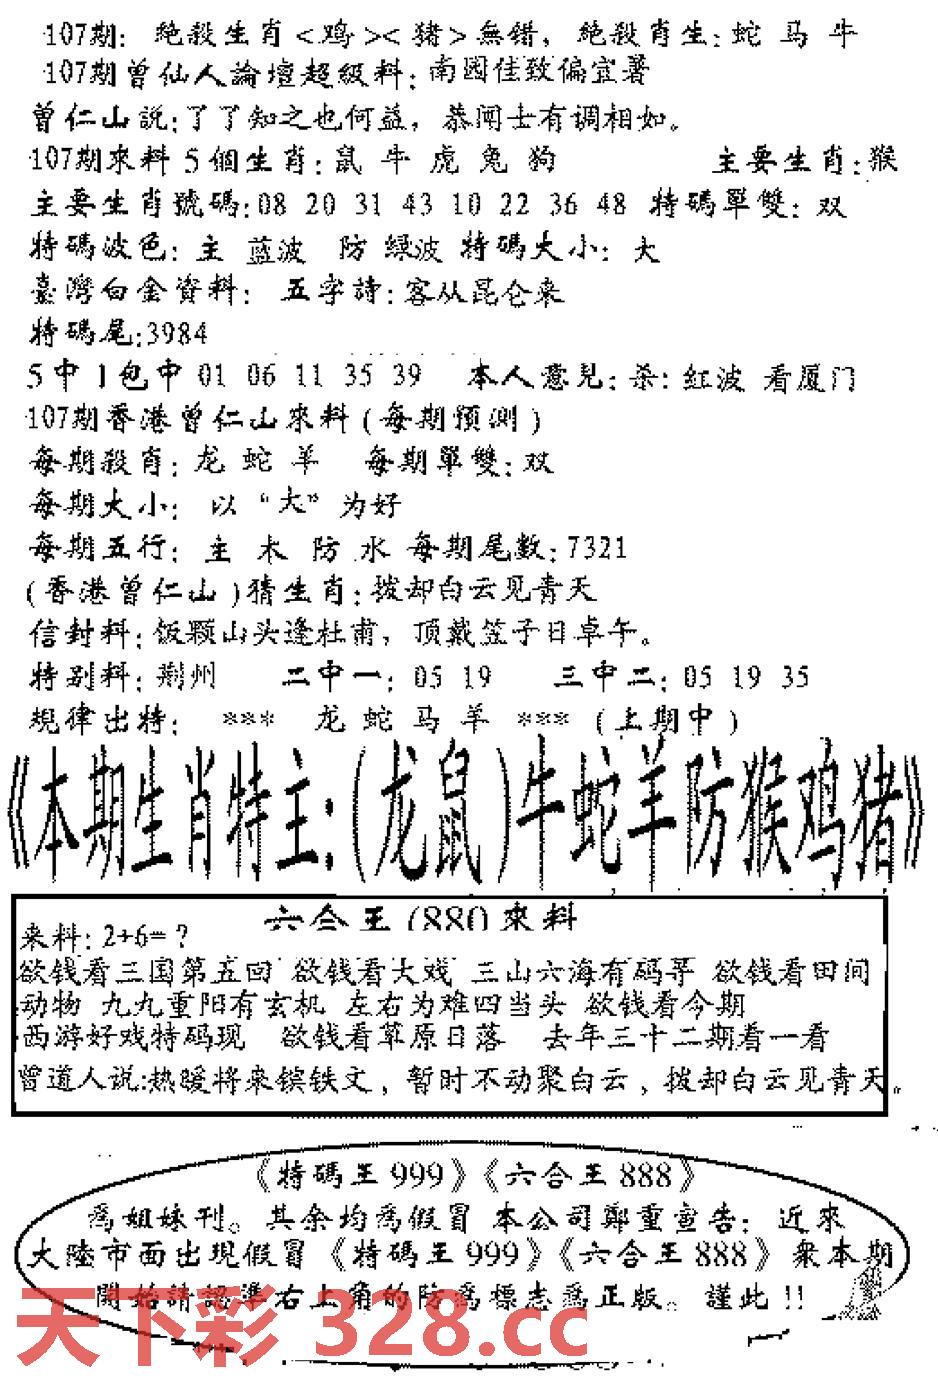 107期: 絶殺生肖<鸡><猪>無错, 絶殺肖生:蛇 马 牛
107期曾仙人論壇超級料:南园佳致偏宜薯
曾仁山說:了了知之也何益, 恭闻士有调相如。
107期來料 5 個生肖:鼠 牛 虎 兔 狗 主要生肖:猴
主要生肖號碼:08 20 31 43 10 22 36 48 特碼單雙: 双
特碼波色: 主 蓝波 防 绿波 特碼大小: 大
臺灣白金資料: 五字詩:客从昆仑来
特碼尾:3984
5 中 1 包中 01 06 11 35 39 本人意見:杀:红波 看厦门
107期香港曾仁山來料(每期預測)
每期殺肖:龙 蛇 羊 每期單雙:双
每期大小: 以“大”为好
每期五行: 主 木 防 水 每期尾數:7321
(香港曾仁山)猜生肖:拨却白云见青天
信封料:饭颗山头逢杜甫, 顶戴笠子日卓午。
特别料:荆州 二中一: 05 19 三中二: 05 19 35
規律出特: *** 龙 蛇 马 羊 *** (上期中)
《本期生肖特主:(龙鼠)牛蛇羊防猴鸡猪》
六合王(880)來料
来料: 2+6=?
欲钱看三国第五回 欲钱看大戏 三山六海有码寻 欲钱看田间
动物 九九重阳有玄机 左右为难四当头 欲钱看今期
西游好戏特码现 欲钱看草原日落 去年三十二期看一看
曾道人说:热暖将来镔铁文, 暂时不动聚白云, 拨却白云见青天。
《特碼王 999》《六合王 888》
為姐妹刊。其余均為假冒 本公司鄭重宣告: 近來
大陸市面出現假冒《特碼王 999》《六合王 888》衆本期
開始請認準右上角的防為標志為正版。謹此!!
天下彩 328.cc